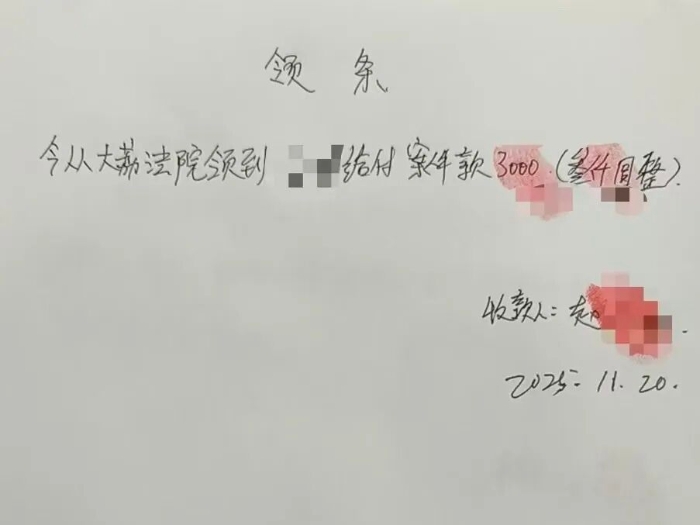 领 条
今从大荔法院领到 给付案件款3000.(叁仟圆整).
收款人:赵
2025.11.20.